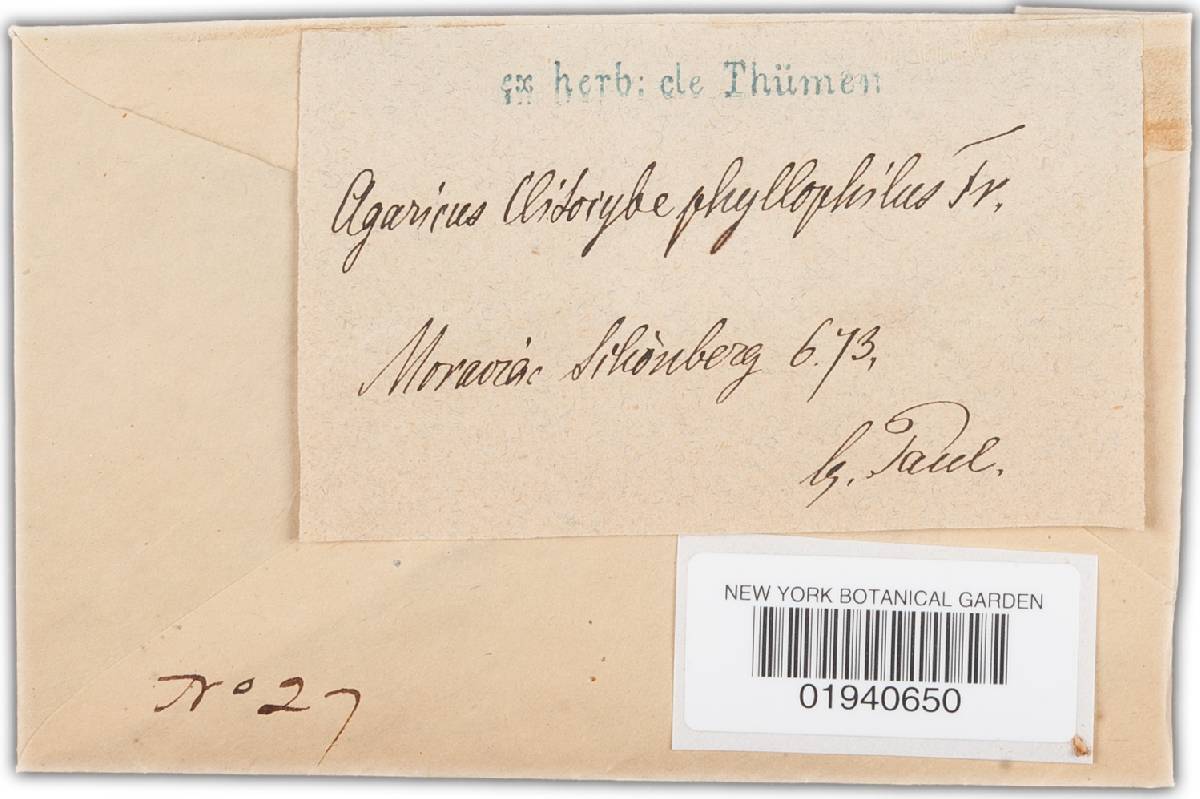 ex herb: de Thümen
Agaricus Clitocybe phyllophilus Fr.
Moraviae Schönberg 6.73.
Paul.
NEW YORK BOTANICAL GARDEN
01940650
No 27